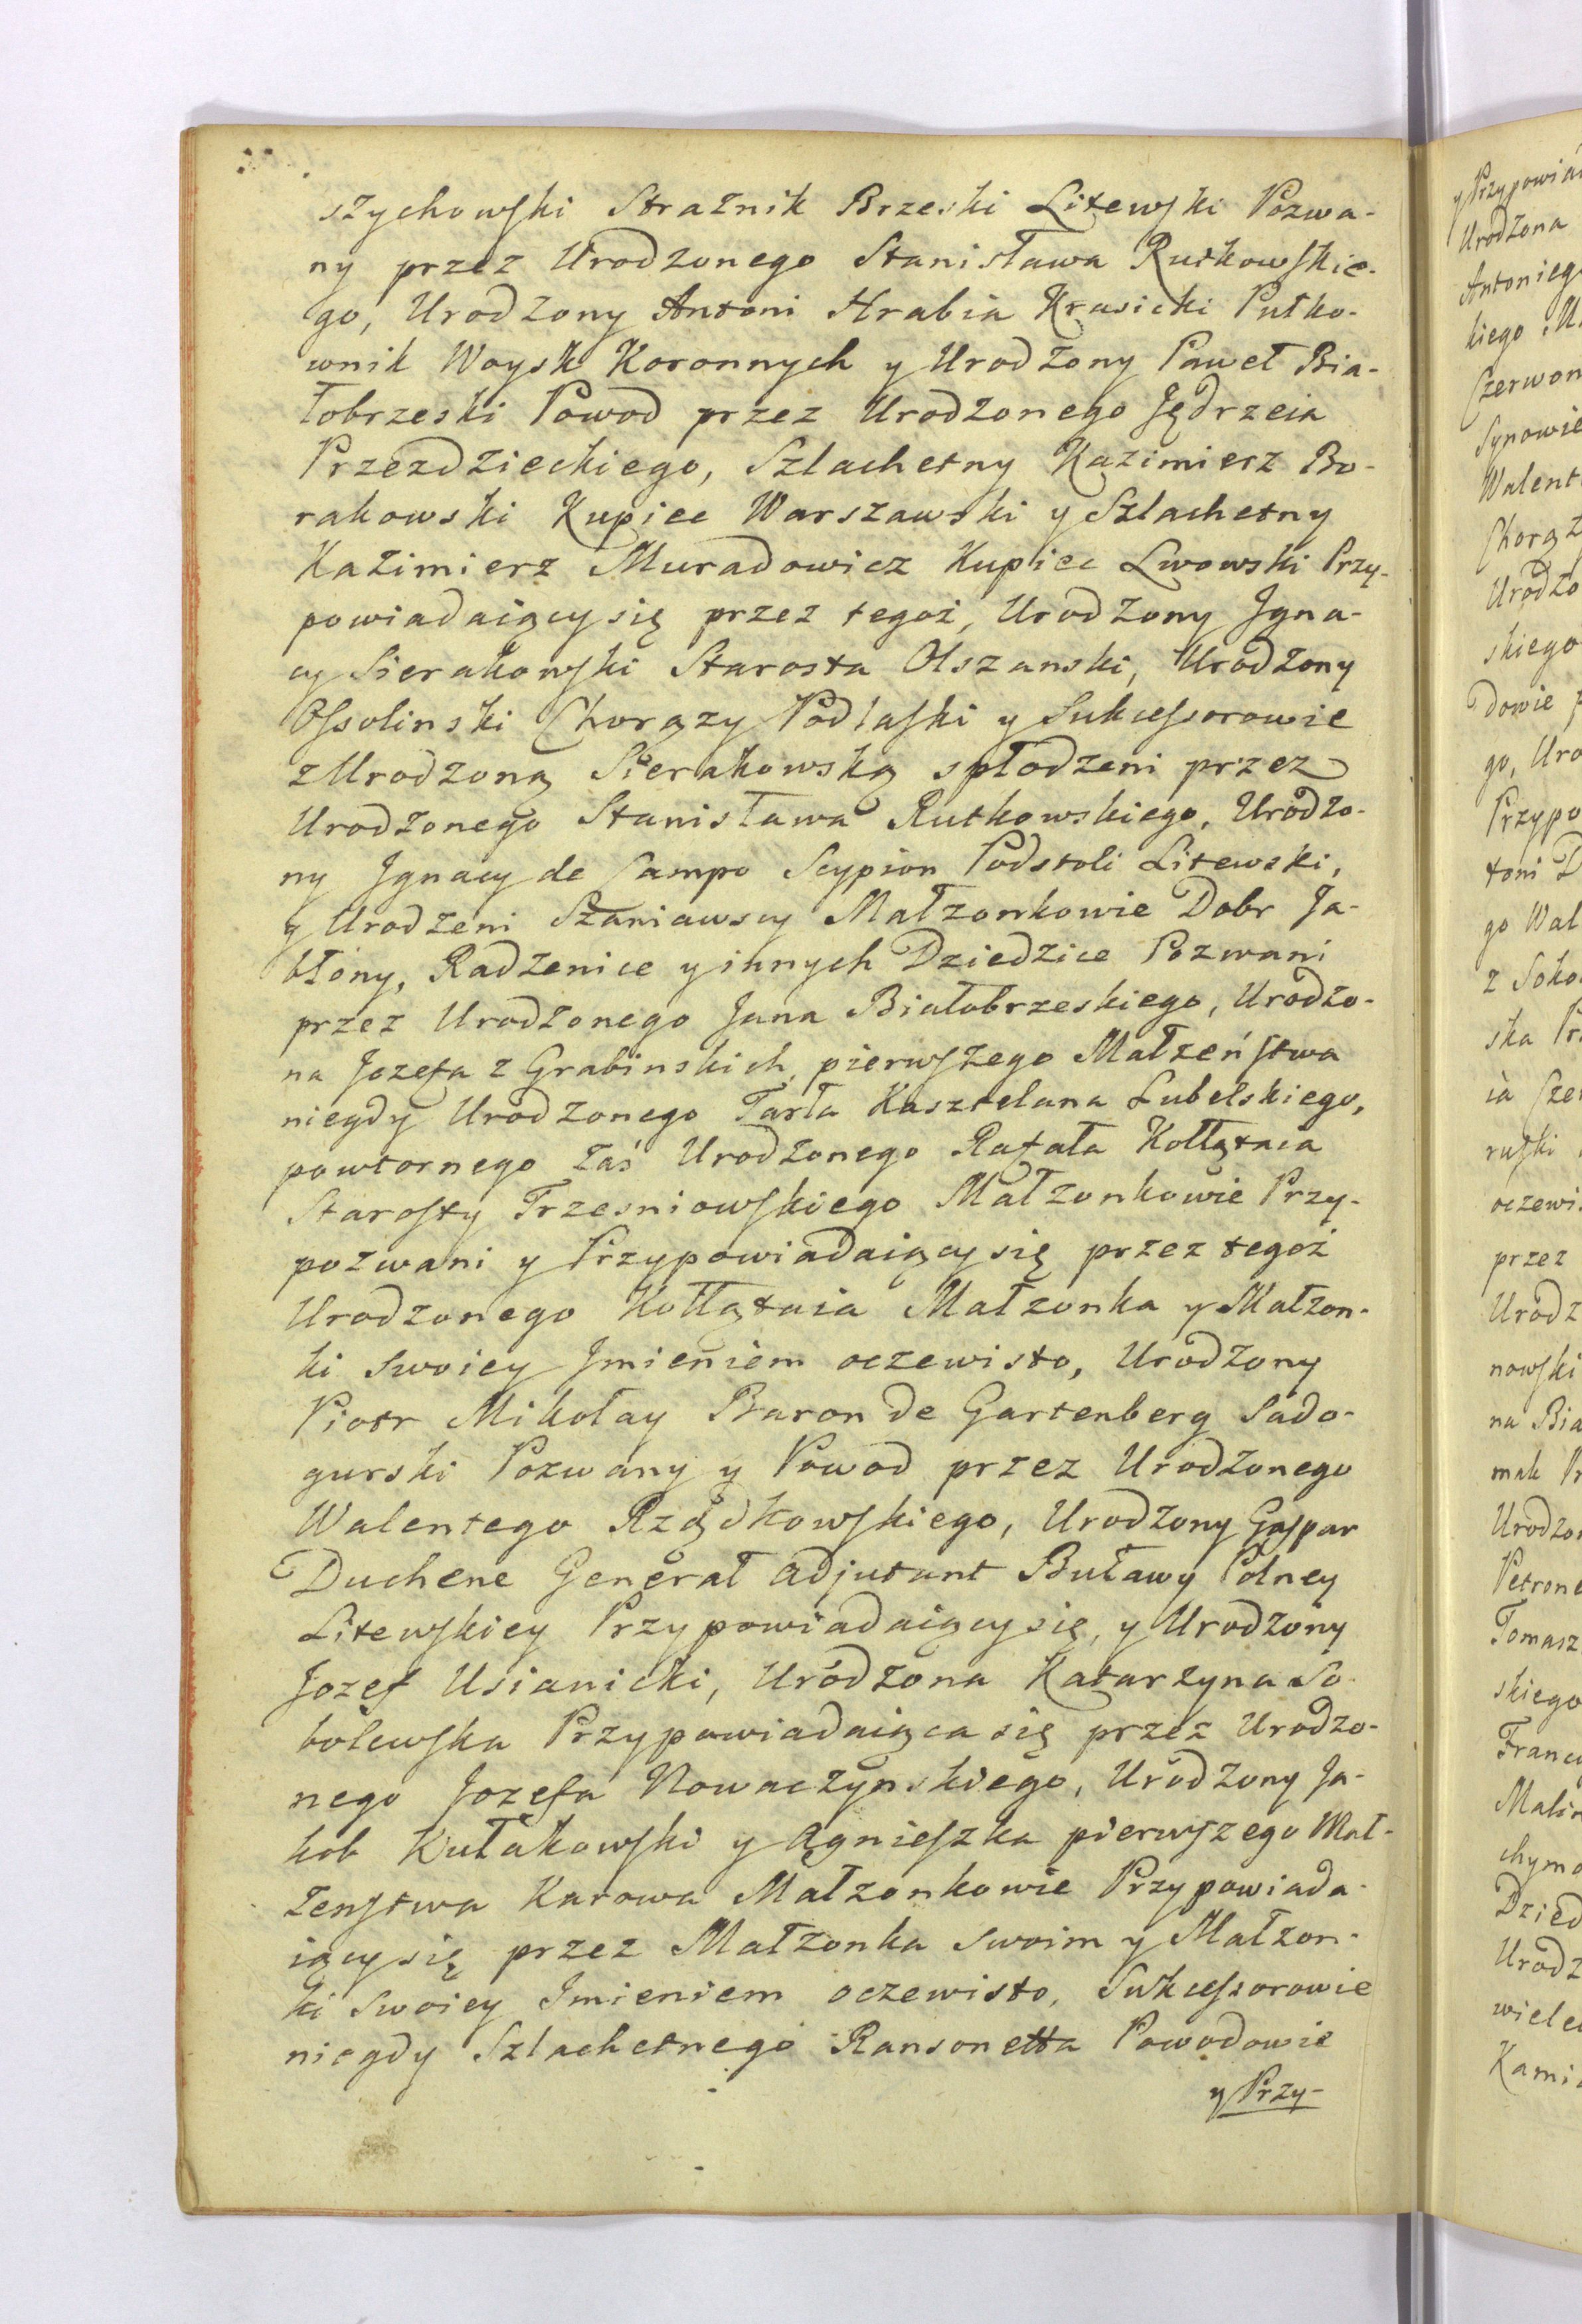 szychowski Straznik Brzeski Litewski Pozwa-
ny przez Urodzonego Stanisława Rutkowskie-
go, Urodzony Antoni Hrabia Krasicki Pułko-
wnik Woysk Koronnych y Urodzony Paweł Bia-
łobrzeski Powod przez Urodzonego Jędrzeia
Przezdzieckiego, Szlachetny Kazimierz Bo-
rakowski Kupiec Warszawski y Szlachetny
Kazimierz Muradowicz Kupiec Lwowski Przy-
powiadaiący się przez tegoż, Urodzony Igna-
cy Sierakowski Starosta Olszanski, Urodzony
Ossolinski Chorązy Podlaski y Sukcessorowie
z Urodzoną Sierakowską spłodzeni przez
Urodzonego Stanisława Rutkowskiego, Urodzo-
ny Ignacy de Campo Scypion Podstoli Litewski,
y Urodzeni Szaniawscy Małzonkowie Dobr Ja-
błony, Radzenice y innych Dziedzice Pozwani
przez Urodzonego Jana Białobrzeskiego, Urodzo-
na Jozefa z Grabinskich, pierwszego Małzeństwa
niegdy Urodzonego Tarła Kasztelana Lubelskiego,
powtornego zaś Urodzonego Rafała Kołłątaia
Starosty Trzesniowskiego Małzonkowie Przy-
pozwani y Przypowiadaiący się przez tegoż
Urodzonego Kołłątaia Małzonka y Małzon-
ki swoiey Imieniem oczewisto, Urodzony
Piotr Mikołay Baron de Gartenberg Sado-
gurski Pozwany y Powod przez Urodzonego
Walentego Rządkowskiego, Urodzony Gaspar
Duchene Generał Adjutant Buławy Polney
Litewskiey Przypowiadaiący się, y Urodzony
Jozef Usianicki, Urodzona Katarzyna So-
bolewska Przypowiadaiąca się przez Urodzo-
nego Jozefa Nowaczynskiego, Urodzony Ja-
kob Kułakowski y Agnieszka pierwszego Mał-
zenstwa Karowa Małzonkowie Przypowiada-
iący się przez Małzonka swoim y Małzon-
ki swoiey Imieniem oczewisto, Sukcessorowie
niegdy Szlachetnego Ransonetta Powodowie
y Przy-
y Przypowia
Urodzona
Antonieg
kiego, U
Czerwon
Synowie
Walent
Chorąz
Urodzo
skiego
dowie p
go, Uro
Przypo
toni D
go Wal
z Soko
ska Pr
ia Cze
ruski
oczewi
przez
Urodz
nowski
na Bia
mak Pr
Urodzo
Petrone
Tomasz
skiego
Franc
Malin
chymo
Dzied
Urodz
wiele
Kami